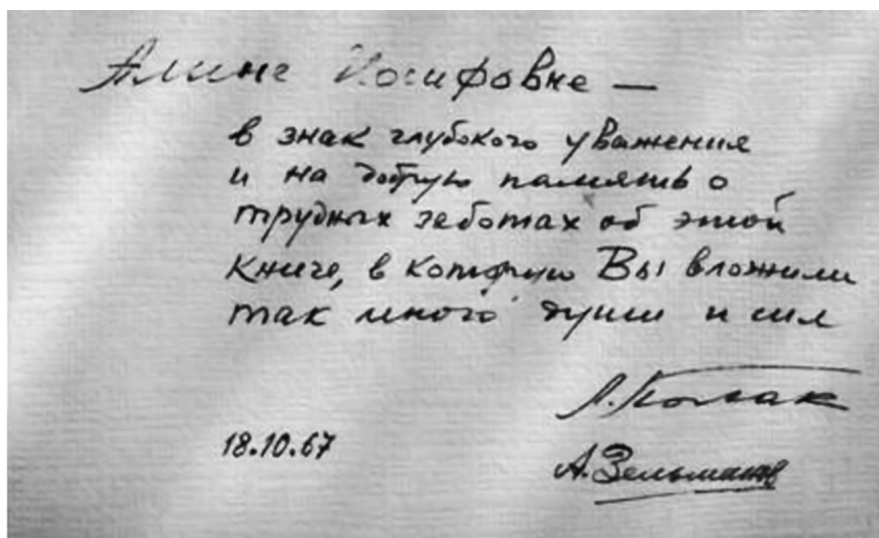 Алине Иосифовне —
в знак глубокого уважения
и на добрую память о
трудных заботах об этой
книге, в которую Вы вложили
так много души и сил
18.10.67
А. Зельманов